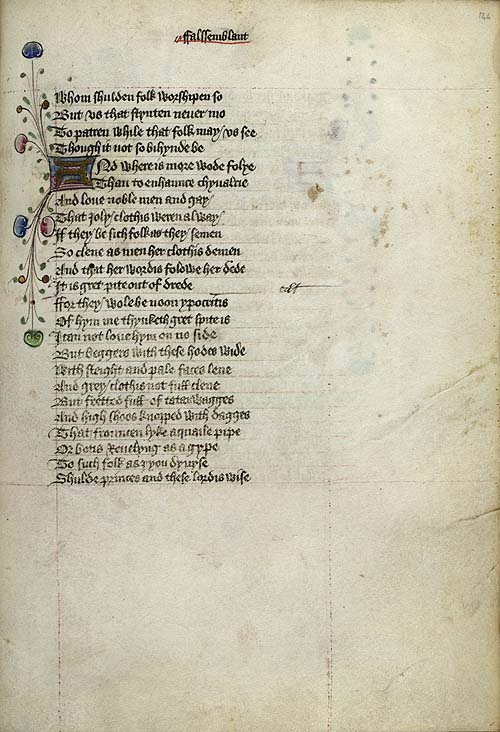 ffalssemblant
144
Whom shulden folk worshipen so
But vs that stynten neuer mo
To patren while that folk may vs see
Though it not so bihynde be
And where is more wode folye
Than to enhaunce chyualrie
And loue noble men and gay
That ioly clothis weren alway
If they be sich folk as they semen
So clene as men her clothis demen
And that her wordis folowe her dede
It is gret pite out of drede
ffor they wole be noon ypocritis
Of hym me thynketh gret spite is
I can not loue hym on no side
But beggers with these hodes wide
With sleight and pale faces lene
And grey clothis not full clene
But fretted full of tatarwagges
And high shoos knopped with dagges
That frouncen lyke a quaile pipe
Or botis reuelyng as a gype
To such folk as I you dyuyse
Shulde princes and these lordis wise